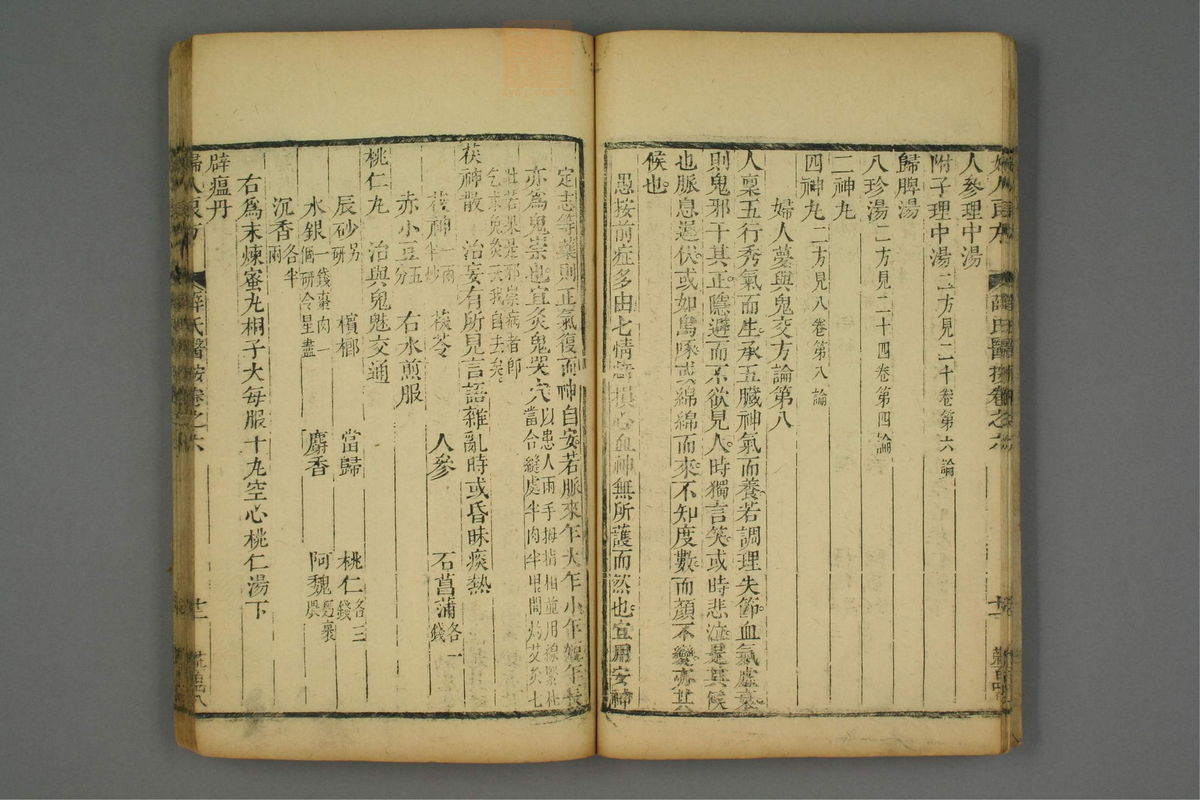 婦人良方 薛氏醫按卷之六
人參理中湯
附子理中湯 二方見二十卷第六論
歸脾湯
八珍湯 二方見二十四卷第四論
二神丸
四神丸 二方見八卷第八論
婦人夢與鬼交方論第八
人稟五行秀氣而生承五臟神氣而養若調理失節血氣虛衰
則鬼邪干其正隱避而不欲見人時獨言笑或時悲泣是其候
也脈息遲伏或如鳥啄或綿綿而來不知度數而顏不變亦其
候也
愚按前症多由七情虧損心血神無所護而然也宜用安神
定志等藥則正氣復而神自安若脈來乍大乍小乍短乍長
亦為鬼祟也宜灸鬼哭穴 以患人兩手拇指相並用線緊札
當合縫處半肉半甲間灼艾灸七
壯若果是邪祟病者即
乞求免灸云我自去矣
茯神散 治妄有所見言語雜亂時或昏昧痰熱
茯神 一兩半炒 茯苓 人參 石菖蒲 各一錢
赤小豆 五分 右水煎服
桃仁丸 治與鬼魅交通
辰砂 另研 檳榔 當歸 桃仁 各三錢
水銀 一錢棗肉一個研令星盡 麝香 阿魏
沉香 各半兩
右為末煉蜜丸梧子大每服十丸空心桃仁湯下
辟瘟丹
婦人良方 薛氏醫按卷之六 十二